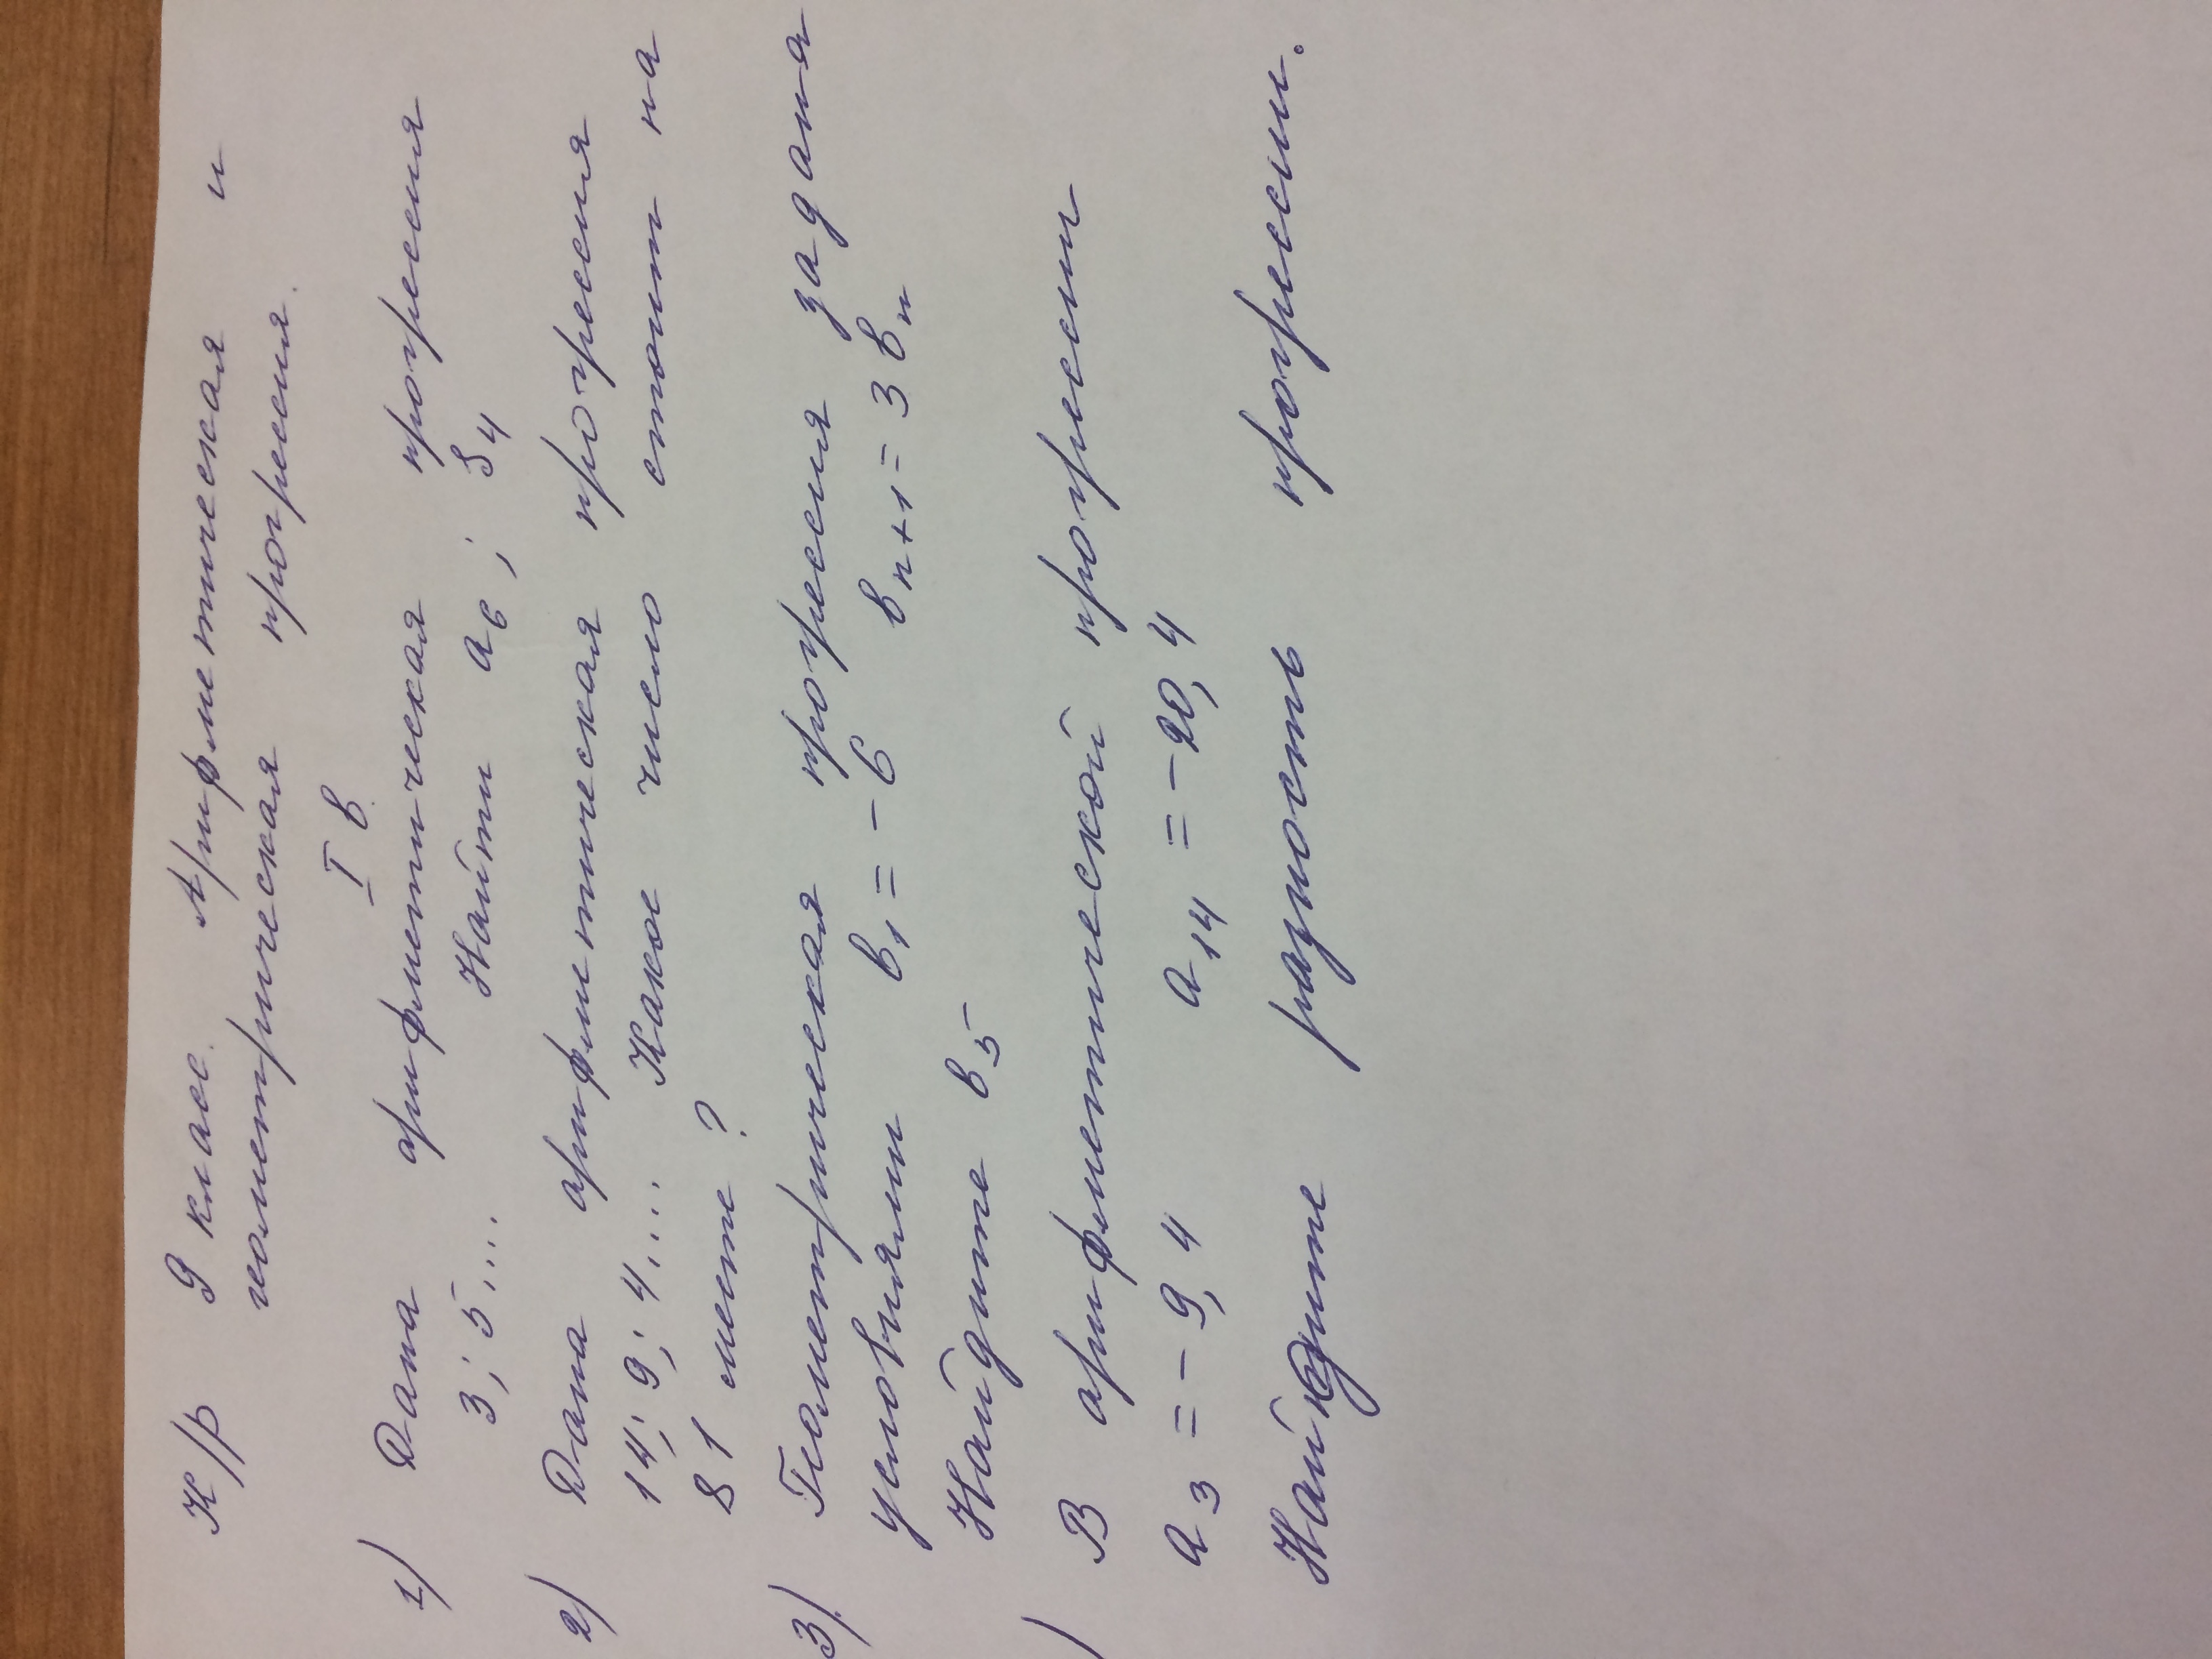 К/р 9 класс. Арифметическая и
геометрическая прогрессия.
I в.
1) Дана арифметическая прогрессия
3; 5.... Найти a₆; S₄
2) Дана арифметическая прогрессия
14; 9; 4.... Какое число стоит на
81 месте?
3). Геометрическая прогрессия задана
условиями b₁ = -6 bₙ₊₁ = 3bₙ
Найдите b₅
) В арифметической прогрессии
a₃ = -9,4 a₁₄ = -20,4
Найдите разность прогрессии.